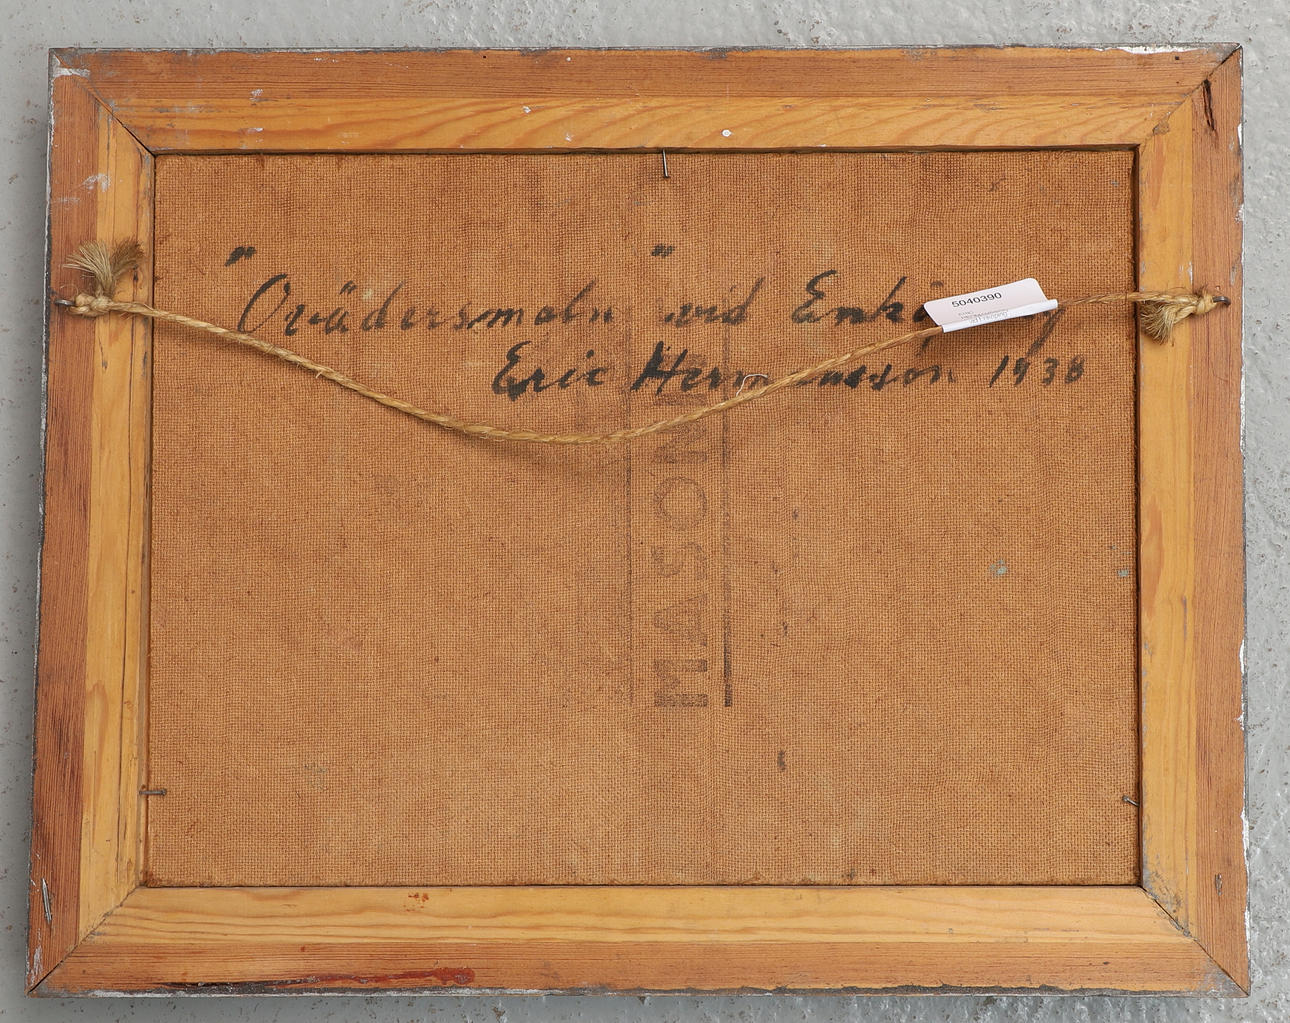 "Ovädersmoln" vid Enköping
Eric Hermansson 1938
5040390
MASONIT